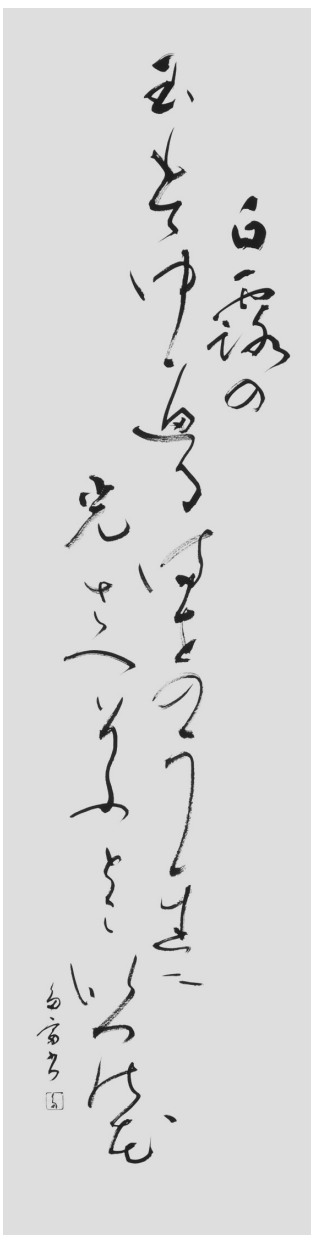 白露の
玉もてゆへるませのうちに
光さへそふとこなつの花